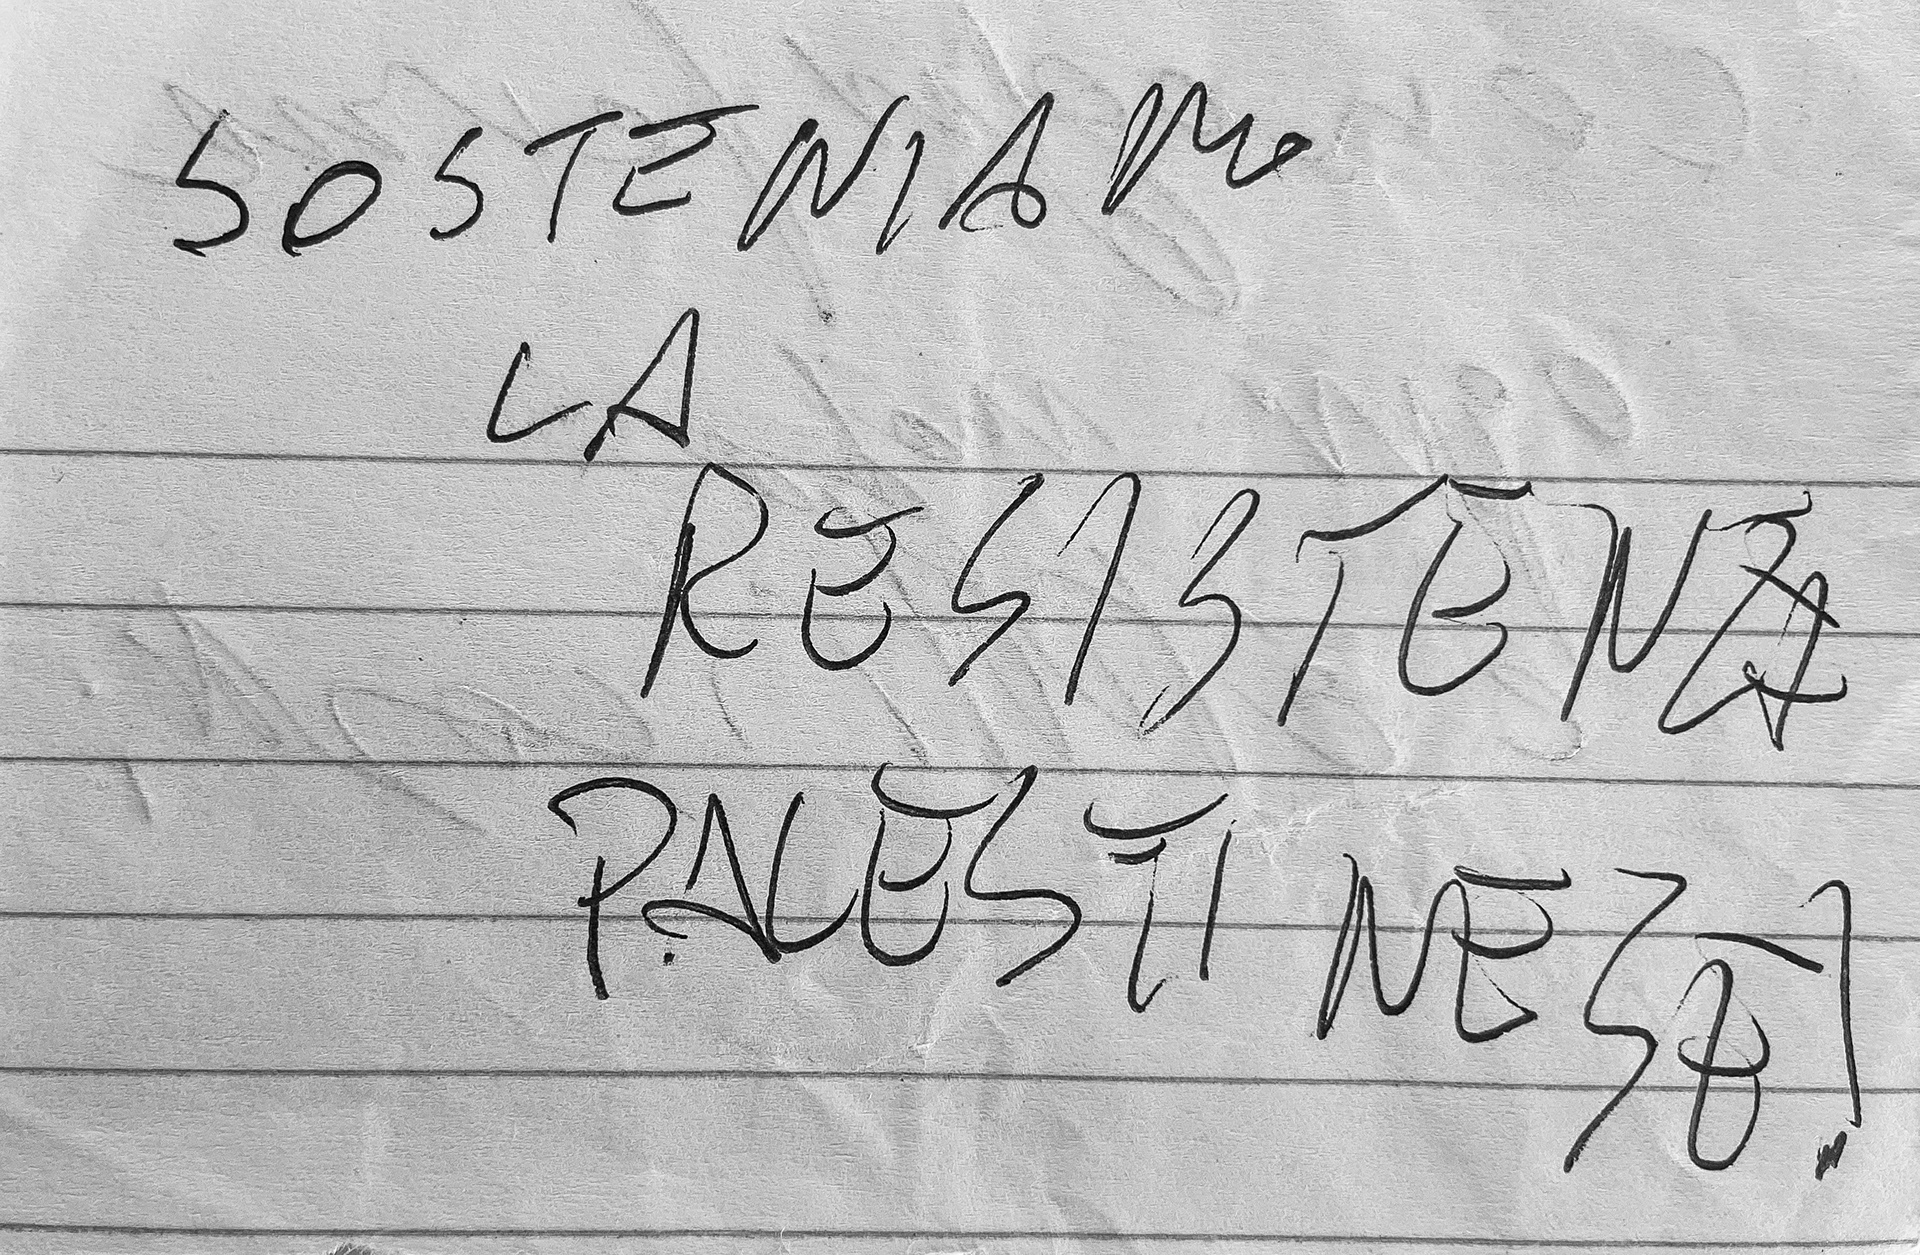 SOSTENIAMO
LA
RESISTENZA
PALESTINESE!